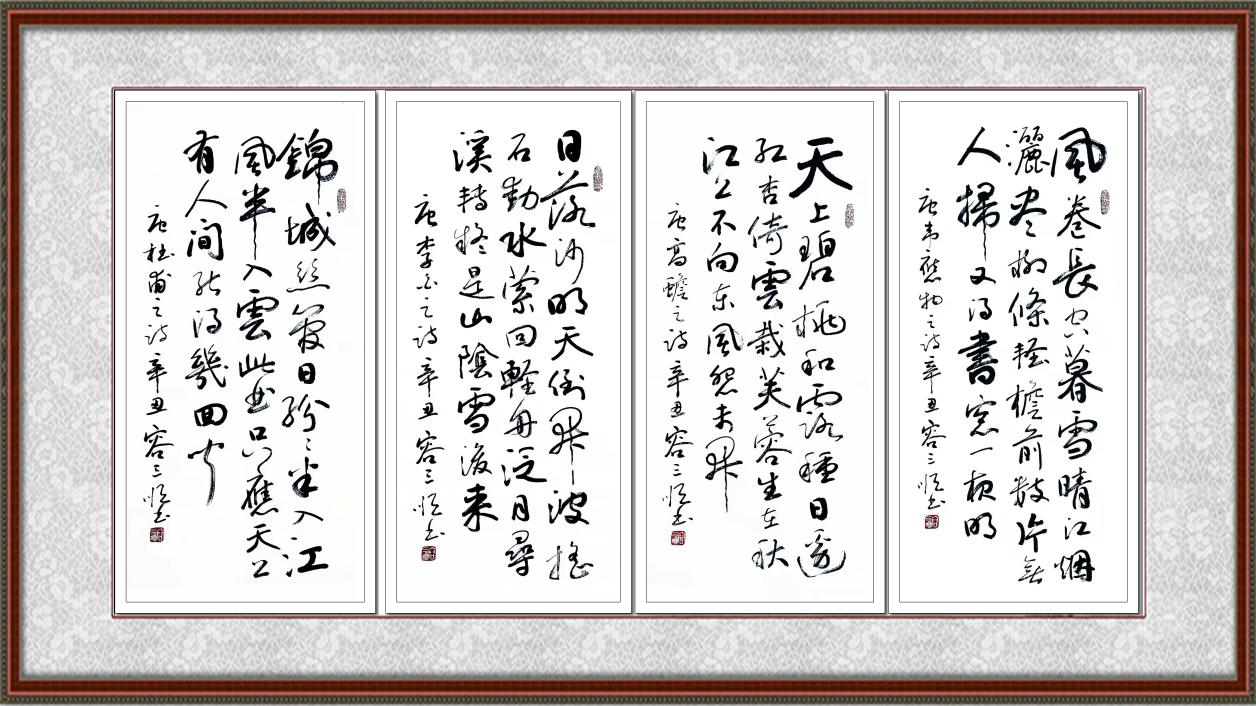 風卷長空暮雪晴江烟
灑尽柳條軽檐前数片無
人掃又得書窓一夜明
唐韋應物之诗辛丑容三恒书
天上碧桃和露種日邊
紅杏倚雲栽芙蓉生在秋
江上不向东風怨未開
唐高蟾之诗辛丑容三恒书
日落沙明天倒開波搖
石動水縈回軽舟泛月尋
溪轉疑是山陰雪後来
唐李白之诗辛丑容三恒书
錦城丝管日紛〻半入江
風半入雲此曲只應天上
有人间能得幾回聞
唐杜甫之诗辛丑容三恒书